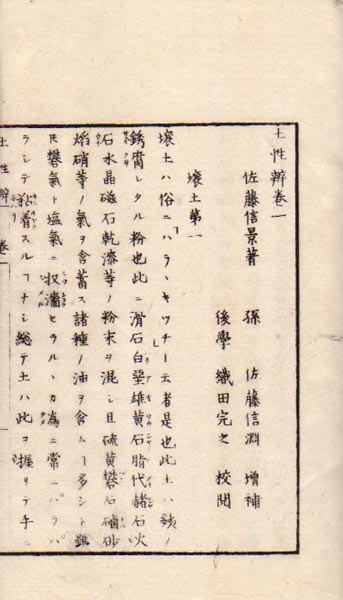 土性辨卷一
佐藤信景著 孫 佐藤信淵 增補
後學 織田完之 校閲
壤土第一
壤土ハ俗ニ「ハラヽキツチ」ト云者是也此土ハ鐵ノ
銹腐レタル粉也此ニ滑石白堊雄黄石脂代赭石火
石水晶磁石乾漆等ノ粉末ヲ混シ且硫黄礬石硇砂
焰硝等ノ氣ヲ含蓄ス諸種ノ油ヲ含ムヿ多シト雖
𪜈礬氣ト塩氣ニ収濇セラルヽカ為ニ常ニパラパ
ラシテ粘着スルヿナシ総テ土ハ此ヲ握リテ手ニ
土性辨 卷一